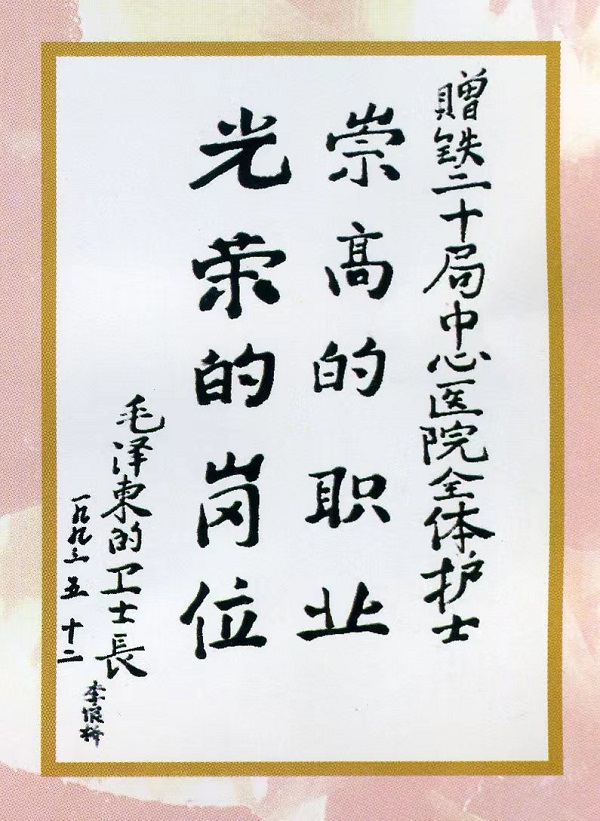 贈铁二十局中心医院全体护士
崇高的职业
光荣的岗位
毛泽東的卫士長
李银桥
一九九三 五 十二